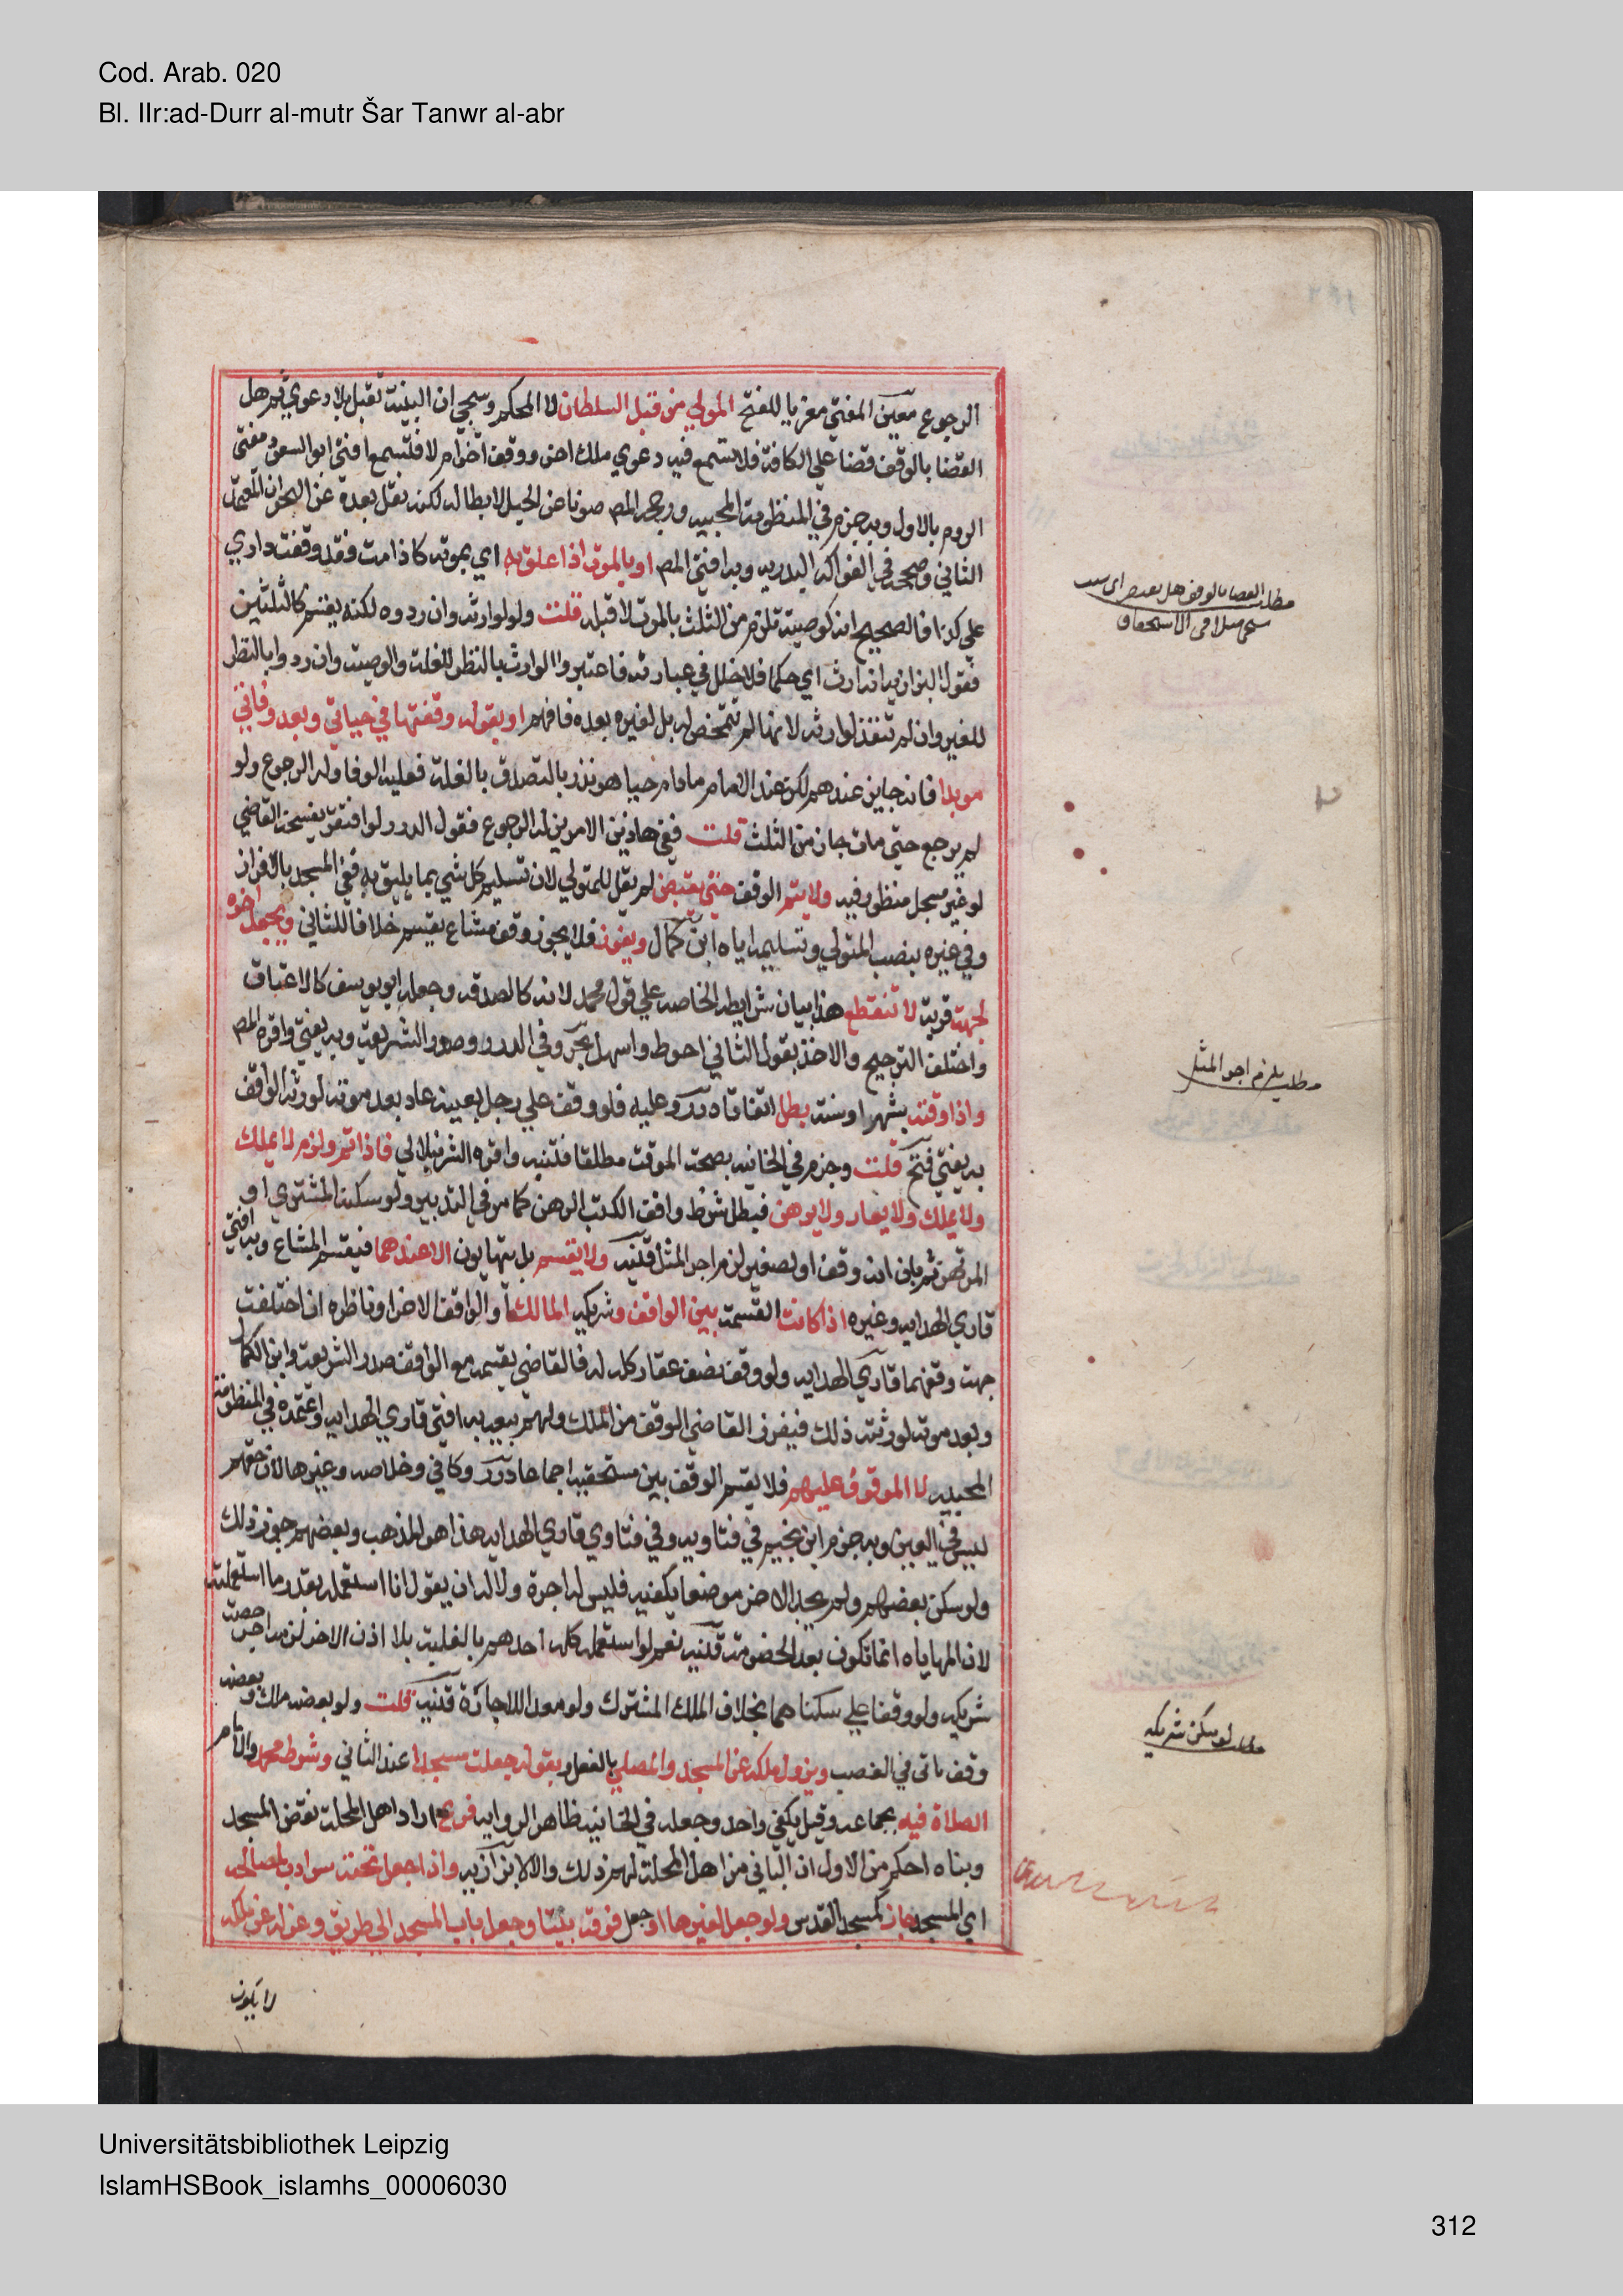 Cod. Arab. 020
Bl. IIr:ad-Durr al-mutr Šar Tanwr al-abr
الرجوع معين المفتي معزيا للفتح المولي من قبل السلطان لا المحكم وسيجي ان البينة تقبل بلا دعوي ثم هل
القضا بالوقف قضا علي الكافة فلا تسمع فيه دعوي ملك اخر ووقف اخر ام لا فتسمع افتي ابو السعود مفتي
الروم بالاول وبه جزم في المنظومة المحبيه ورجحه المص صونا عن الحيل لابطاله لكنه نقل بعده عن البحر ان المعتمد
الثاني وصححه في الفواكه البدريه وبه افتي المص او بالموت اذا علق به اي بموته كاذا مت فقد وقفت داري
علي كذا فالصحيح انه كوصية تلزم من الثلث بالموت لا قبله قلت ولو لوارثه وان ردوه لكنه يقسم كالثلثين
فقول البزازيه انه ارث اي حكما فلا خلل في عبارته فاعتبروا الوارث بالنظر للغلة والوصية وان ردوا بالنظر
للغير وان لم تنفذ لوارثه لانها لم تتمحض له بل لغيره بعده فافهم او بقوله وقفتها في حياتي وبعد وفاتي
موبدا فانه جايز عندهم لكن عند الامام مادام حيا هو نذر بالتصدق بالغلة فعليه الوفا وله الرجوع ولو
لم يرجع حتى مات جاز من الثلث قلت ففي هاذين الامرين له الرجوع فقول الدرر لو افتقر يفسخه القاضي
لو غير مسجل منظور فيه ولا يتم الوقف حتي يقبض لم يقل للمتولي لان تسليم كل شي بما يليق به ففي المسجد بالافراز
وفي غيره بنصب المتولي وتسليمه اياه ابن كمال ويفرز فلا يجوز وقف مشاع يقسم خلافا للثاني ويجعل اخره
لجهة قربة لا تنقطع هذا بيان شرايطه الخاصه علي قول محمد لانه كالصدقه وجعله ابو يوسف كالاعتاق
واختلف الترجيح والاخذ بقول الثاني احوط واسهل بحر وفي الدرر وصدر الشريعة وبه يفتي واقره المص
واذا وقته بشهر او سنة بطل اتفاقا درر وعليه فلو وقف علي رجل بعينه عاد بعد موته لورثه الواقف
به يفتي فتح قلت وجزم في الخانيه بصحة الموقت مطلقا فتنبه واقره الشرنبلالي فاذا تم ولزم لا يملك
ولا يملك ولا يعار ولا يرهن فبطل شرط واقف الكتب الرهن كما مر في التدبير ولو سكنه المشتري او
المرتهن ثم بان انه وقف او لصغير لزم اجر المثل قنيه ولا يقسم بل يتهايون الا عندهما فيقسم المشاع وبه افتي
قاري الهدايه وغيره اذا كانت القسمة بين الواقف وشريكه المالك او الواقف الاخر او ناظره ان اختلفت
جهة وقفهما قاري الهدايه ولو وقف نصف عقار كله له فالقاضي يقسمه مع الواقف صدر الشريعة وابن الكمال
وبعد موته لورثته ذلك فيفرز القاضي الوقف من الملك ولهم بيعه به افتي قاري الهدايه واعتمده في المنظومة
المحبيه لا الموقوف عليهم فلا يقسم الوقف بين مستحقيه اجماعا درر وكافي وخلاصه وغيرها لان حقهم
ليس في العين وبه جزم ابن نجيم في فتاويه وفي فتاوي قاري الهدايه هذا هو المذهب وبعضهم جوز ذلك
ولو سكن بعضهم ولم يجد الاخر موضعا يكفيه فليس له اجرة ولا له ان يقول انا استعمله بقدر ما استعملته
لان المهاياه انما تكون بعد الخصومة قنيه نعم لو استعمله كله احدهم بالغلبة بلا اذن الاخر لزمه اجر حصة
شريكه ولو وقفا علي سكناهما بخلاف الملك المشترك ولو معدا للاجارة قنيه قلت ولو بعضه ملك وبعضه
وقف ياتي في الغصب ويزول ملكه عن المسجد والمصلي بالفعل وبقوله جعلته مسجدا عند الثاني وشرط محمد والامام
الصلاة فيه بجماعه وقيل يكفي واحد وجعله في الخانيه ظاهر الروايه فرع اراد اهل المحلة نقض المسجد
وبناه احكم من الاول ان الباني من اهل المحلة لهم ذلك والا لا بزازيه واذا جعل تحته سردابا لمصالحه
اي المسجد جاز كمسجد القدس ولو جعل لغيرها او جعل فوقه بيتا وجعل باب المسجد الي طريق وعزله عن ملكه
لا يكون
مطلب القضا بالوقف هل
الاستحقاق
مطلب يلزم اجر المثل
مطلب لو سكن شريكه
Universitätsbibliothek Leipzig
IslamHSBook_islamhs_00006030
312